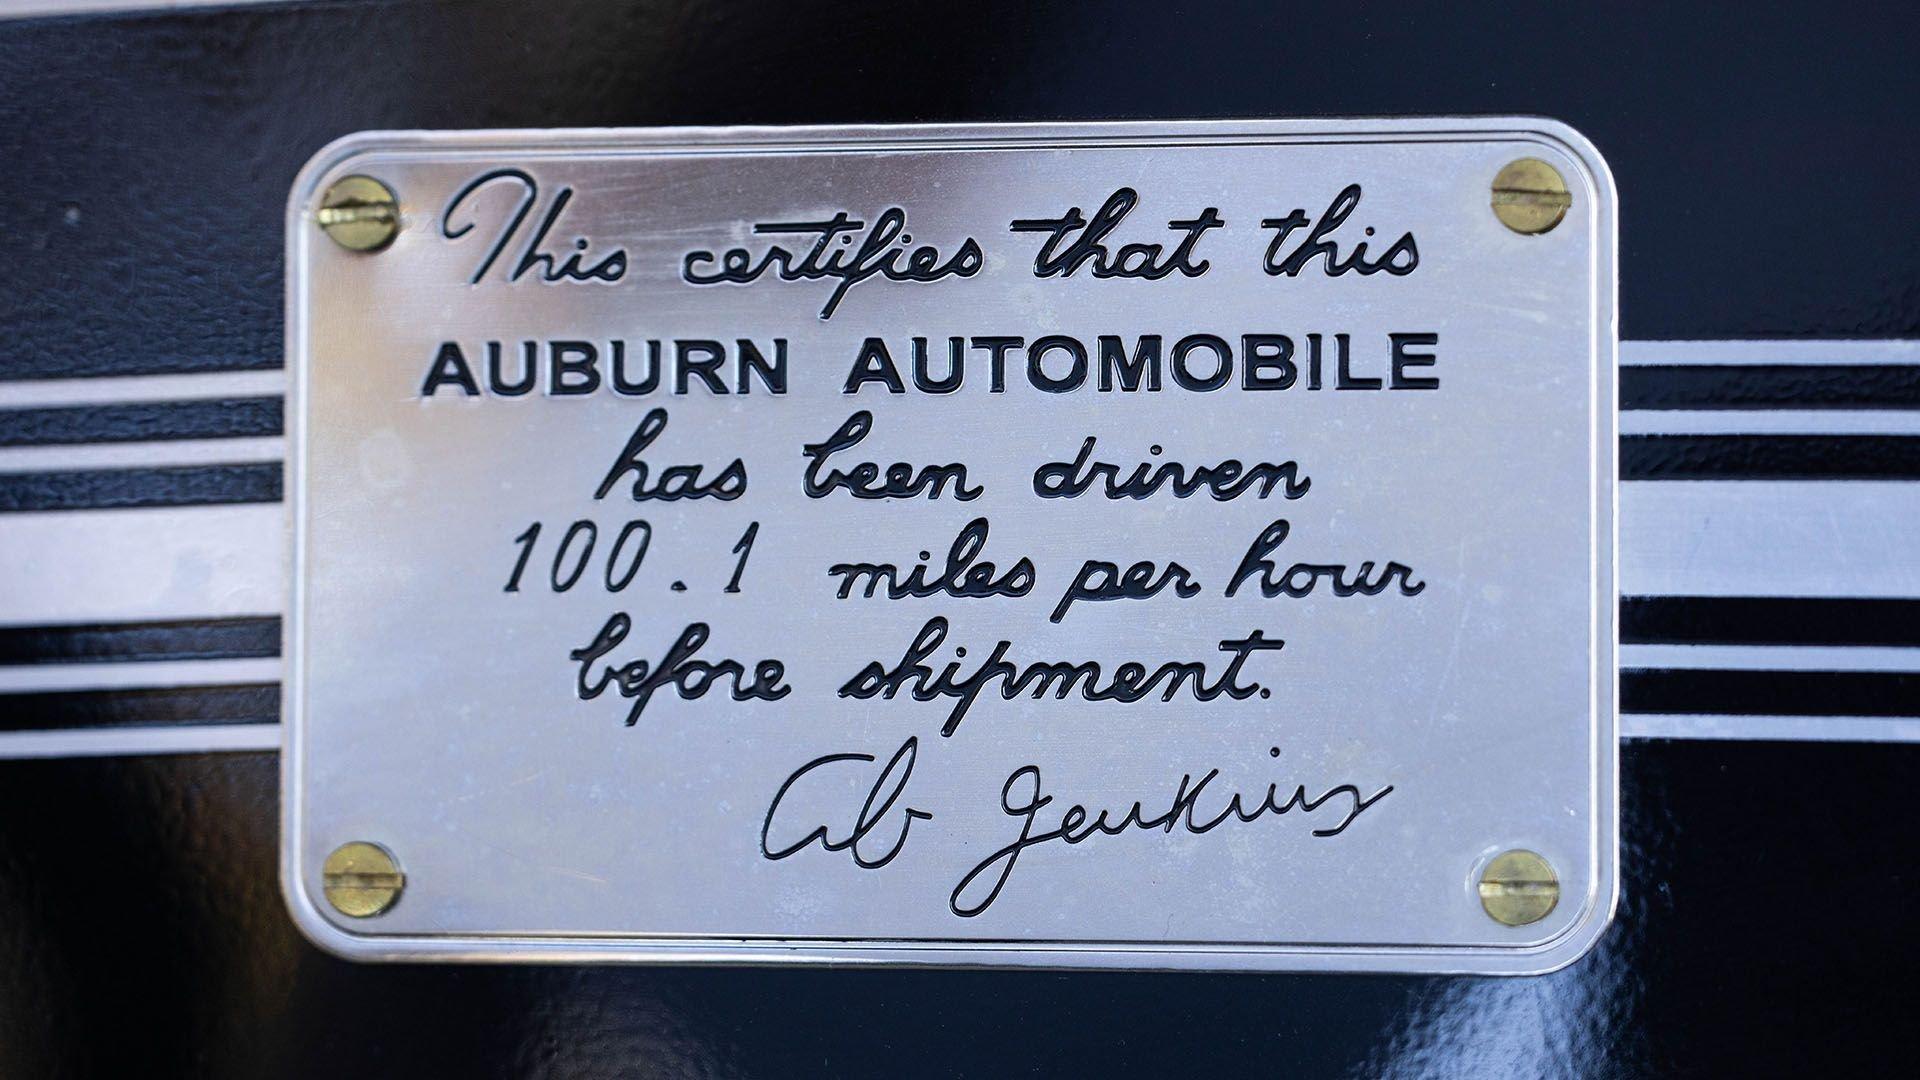 This certifies that this
AUBURN AUTOMOBILE
has been driven
100.1 miles per hour
before shipment.
Ab Jenkins